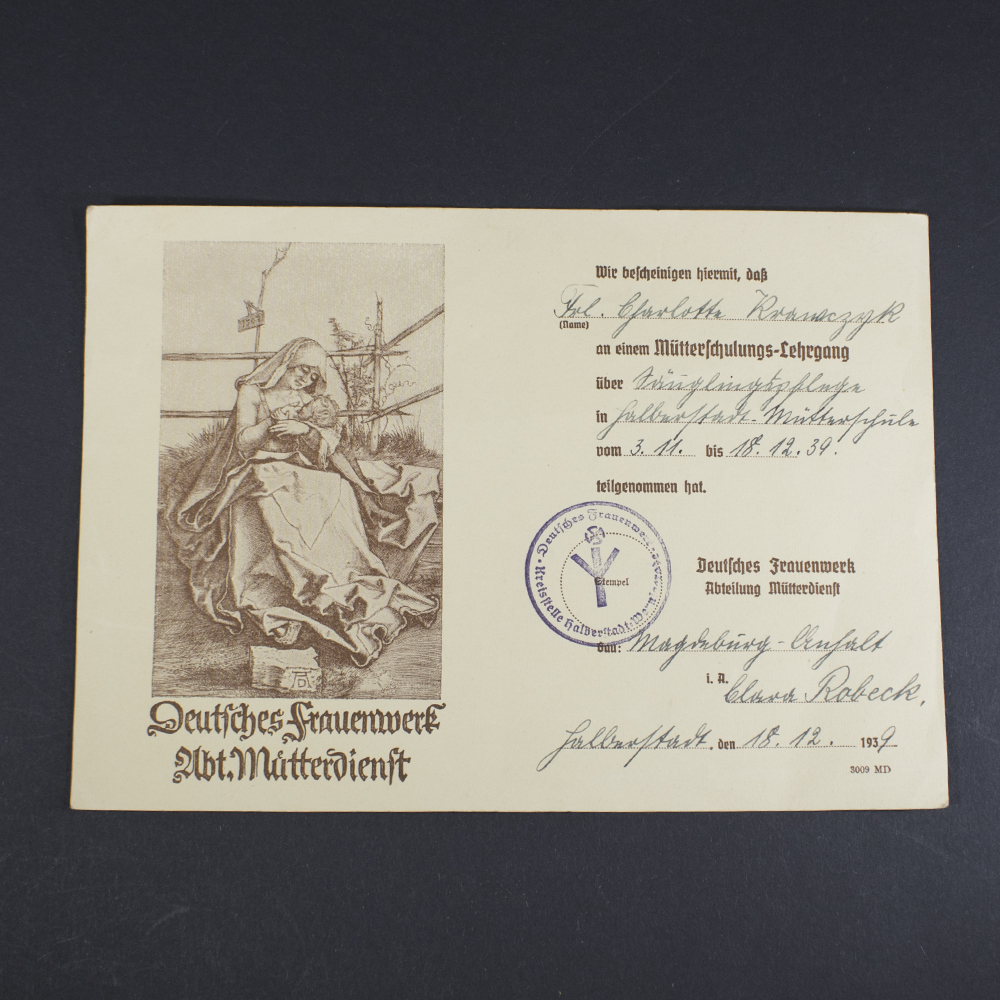 Deutsches Frauenwerk
Abt. Mütterdienst
Wir bescheinigen hiermit, daß
Frl. Charlotte Krawczyk
(Name)
an einem Mütterschulungs-Lehrgang
über Säuglingspflege
in Halberstadt-Mütterschule
vom 3. 11. bis 18. 12. 39.
teilgenommen hat.
Deutsches Frauenwerk
Kreisstelle Halberstadt
Stempel
Deutsches Frauenwerk
Abteilung Mütterdienst
Gau: Magdeburg-Anhalt
i. A.
Clara Robeck.
Halberstadt, den 18. 12. 1939
3009 MD